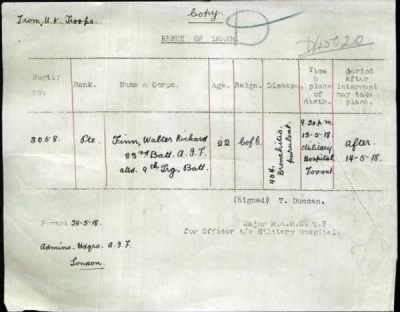 Copy.
From, U.K. Troops.
REPORT OF DEATH
Regtl: No: Rank. Name & Corps. Age. Relign. Disease. Time & place of death. period after Interment may take place.
3058. Pte. Finn, Walter Richard 22 CofE. Bronchitis, purulent. 9.20p.m. 13-5-18. Military Hospital Fovant after. 14-5-18.
33rd Batt. A.I.F.
attd. 9th Trg. Batt.
(Signed) T. Duncan.
Major R.A.M.C. T.F
for Officer i/c Military Hospital
Fovant 24-5-18.
Admins. Hdqrs. A.I.F.
London.